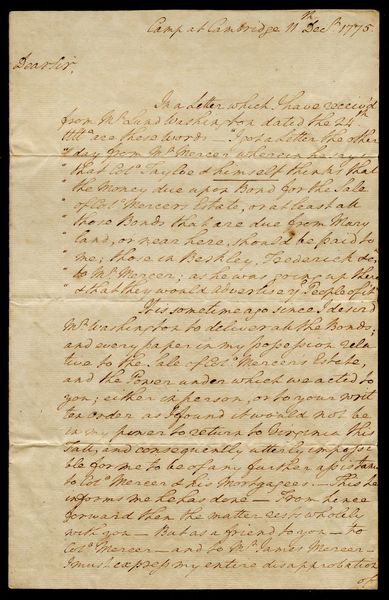 Camp at Cambridge 11th Decr. 1775.
Dear Sir,
In a Letter which I have receiv'd
from Mr. Lund Washington dated the 24th
Ulto. are these words — "I got a Letter the other
"day from Mr. Mercer wherein he says
"that Colo. Tayloe & himself thinks that
"the Money due upon Bond for the Sale
"of Colo. Mercer's Estate, or at least all
"those Bonds that are due from Mary
"land, or near here, should be paid to
"me; those in Berkley, Frederick &ca.
"to Mr. Mercer; as he was going up there
"& that they would advertise ye People of it"
It is some time ago since I desired
Mr. Washington to deliver all the Bonds;
and every paper in my possession rela-
tive to the Sale of Colo. Mercer's Estate,
and the Power under which we acted to
you; either in person, or to your writ
ten order as I found it would not be
in my power to return to Virginia this
Fall, and consequently utterly impossi
ble for me to be of any further assistance
to Colo. Mercer & his Mortgagees. — This he
informs me he has done — From hence
forward then the matter rests wholely
with you — But as a friend to you — to
Colo. Mercer — and to Mr. James Mercer —
I must express my entire disapprobation
of